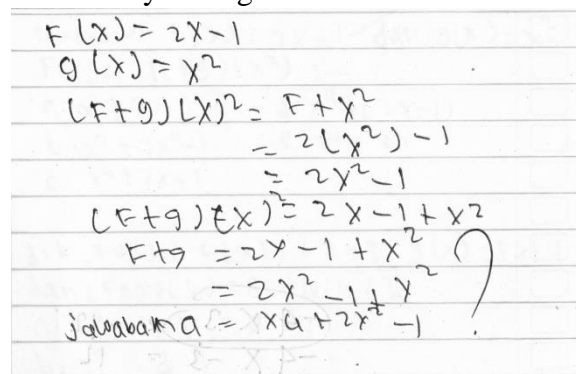 F(x) = 2x-1
g(x) = x²
(F+g)(x)² = F+x²
= 2(x²)-1
= 2x²-1
(F+g)(x)² = 2x-1+x²
F+g = 2x-1+x²
= 2x²-1+x²
= x4+2x²-1 ?